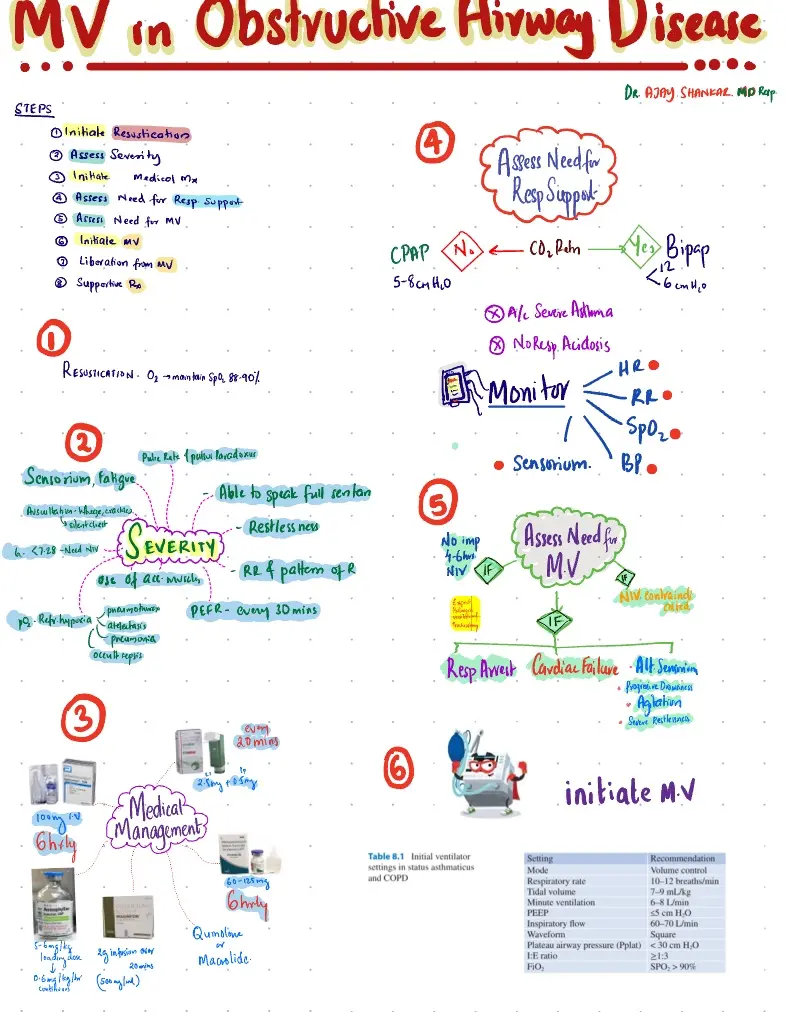 MV in Obstructive Airway Disease
Dr. AJAY SHANKAR MD Resp
STEPS
① Initiate Resustication
② Assess Severity
③ Initiate Medical Mx
④ Assess Need for Resp Support
⑤ Assess Need for MV
⑥ Initiate MV
⑦ Liberation from MV
⑧ Supportive Rx
1
RESUSTICATION - O₂ → maintain SpO₂ 88-90%
2
SEVERITY
Pulse Rate & pulsus Paradoxus
Sensorium, Fatigue
Auscultation - Wheeze, crackles
silent chest
<7.28 - Need NIV
use of acc. muscles
pO₂ - Refr. hypoxia
pneumothorax
atelectasis
pneumonia
occult sepsis
Able to speak full senten
Restlessness
RR & pattern of R
PEFR - every 30 mins
3
Medical Management
every 20 mins
2.5mg + 0.5mg
100mg I.V.
6hrly
60-125mg
6hrly
5-6mg/kg
loading dose
↓
0.6mg/kg/hr
continuous
2g infusion over
20mins
(500mg/ml)
Quinolone
or
Macrolide
4
Assess Need for
Resp Support
CPAP No ← CO₂ Retn → Yes Bipap
5-8cm H₂O
12
6 cm H₂O
ⓧ A/c Severe Asthma
ⓧ No Resp. Acidosis
Monitor
HR
RR
SpO₂
BP
Sensorium.
5
Assess Need for
M.V
No imp
4-6hrs
NIV
IF
IF
IF
NIV contraindi
cated
Resp Arrest
Cardiac Failure
Alt. Sensorium
Progressive Drowsiness
Agitation
Severe Restlessness
6
initiate M.V
Table 8.1 Initial ventilator
settings in status asthmaticus
and COPD
Setting Recommendation
Mode Volume control
Respiratory rate 10–12 breaths/min
Tidal volume 7–9 mL/kg
Minute ventilation 6–8 L/min
PEEP ≤5 cm H₂O
Inspiratory flow 60–70 L/min
Waveform Square
Plateau airway pressure (Pplat) < 30 cm H₂O
I:E ratio ≥1:3
FiO₂ SPO₂ > 90%